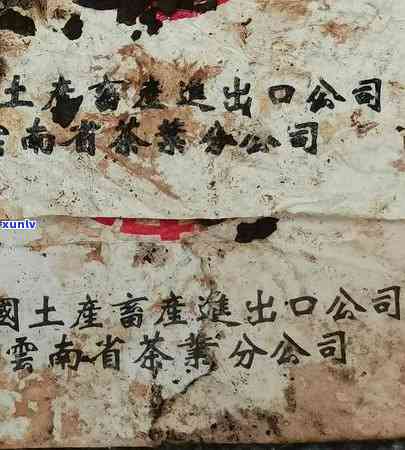 土產畜產進出口公司
雲南省茶葉分公司
xunlv
國土產畜產進出口公司
雲南省茶葉分公司